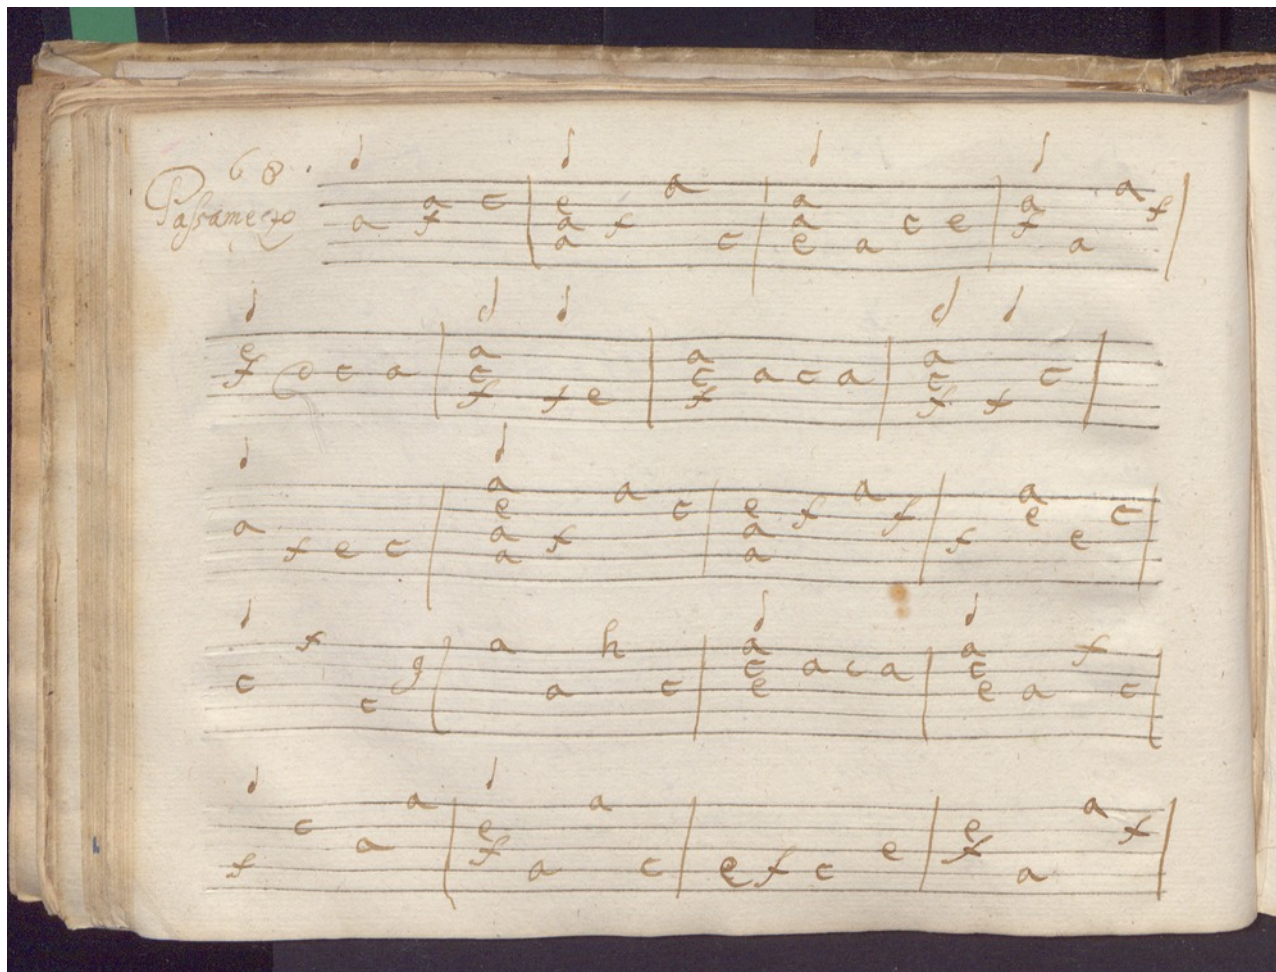 68.
Passamezo
a a f c e a a f a c a a e a c e a f a a f
e f c a a c f f e a c f a c a a c f f c
a f e c a e a a f a c e a a f a f f a e e c
c f c g a a h c a c e a c a a c e a f c
f c a a e f a a c e f c e e f a a f